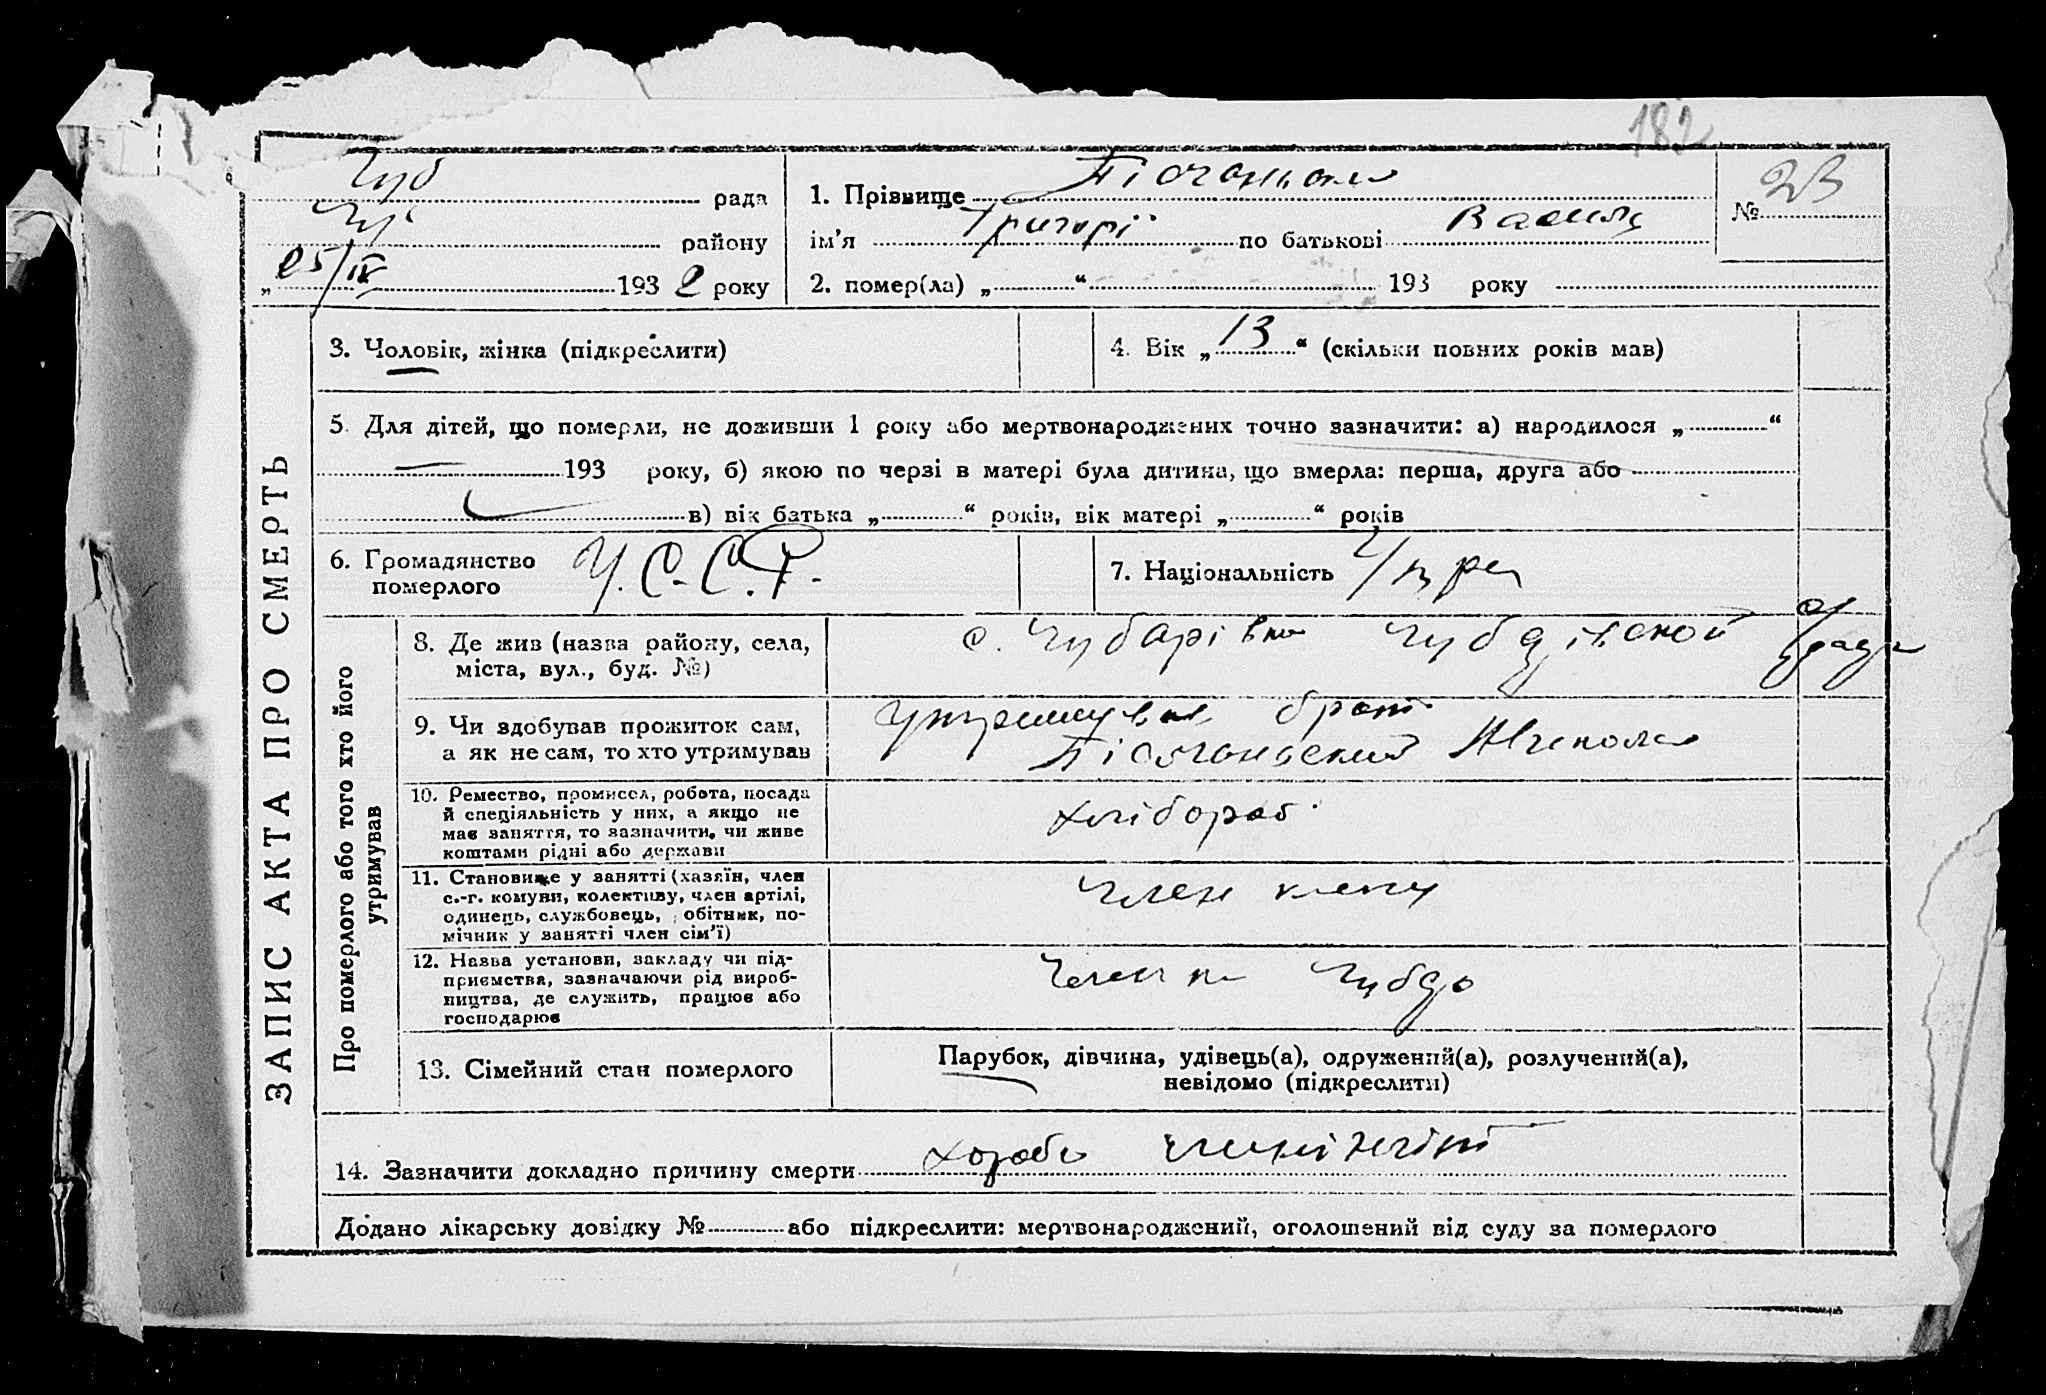 182
Чуб рада
Чуб району
„ 25/IV 1932 року
1. Прізвище
ім’я Григорі по батькові Василь
№ 23
2. помер(ла) „ “ 193 року
ЗАПИС АКТА ПРО СМЕРТЬ
3. Чоловік, жінка (підкреслити)
4. Вік „ 13 “ (скільки повних років мав)
5. Для дітей, що померли, не доживши 1 року або мертвонароджених точно зазначити: а) народилося „ “
193 року, б) якою по черзі в матері була дитина, що вмерла: перша, друга або
в) вік батька „ “ років, вік матері „ “ років
6. Громадянство
померлого У.С.С.Р.
7. Національність Укра
Про померлого або того хто його
утримував
8. Де жив (назва району, села,
міста, вул., буд. №)
с. Чубарівка
9. Чи здобував прожиток сам,
а як не сам, то хто утримував
утримував брат
10. Ремество, промисел, робота, посада
й спеціяльність у них, а якщо не
має заняття, то зазначити, чи живе
коштами рідні або держави
хлібороб
11. Становище у занятті (хазяїн, член
с.-г. комуни, колективу, член артілі,
одинець, службовець, робітник, по-
мічник у занятті член сім’ї)
член
12. Назва установи, закладу чи під-
приємства, зазначаючи рід вироб-
ництва, де служить, працює або
господарює
13. Сімейний стан померлого
Парубок, дівчина, удівець(а), одружений(а), розлучений(а),
невідомо (підкреслити)
14. Зазначити докладно причину смерти хороба
Додано лікарську довідку № або підкреслити: мертвонароджений, оголошений від суду за померлого